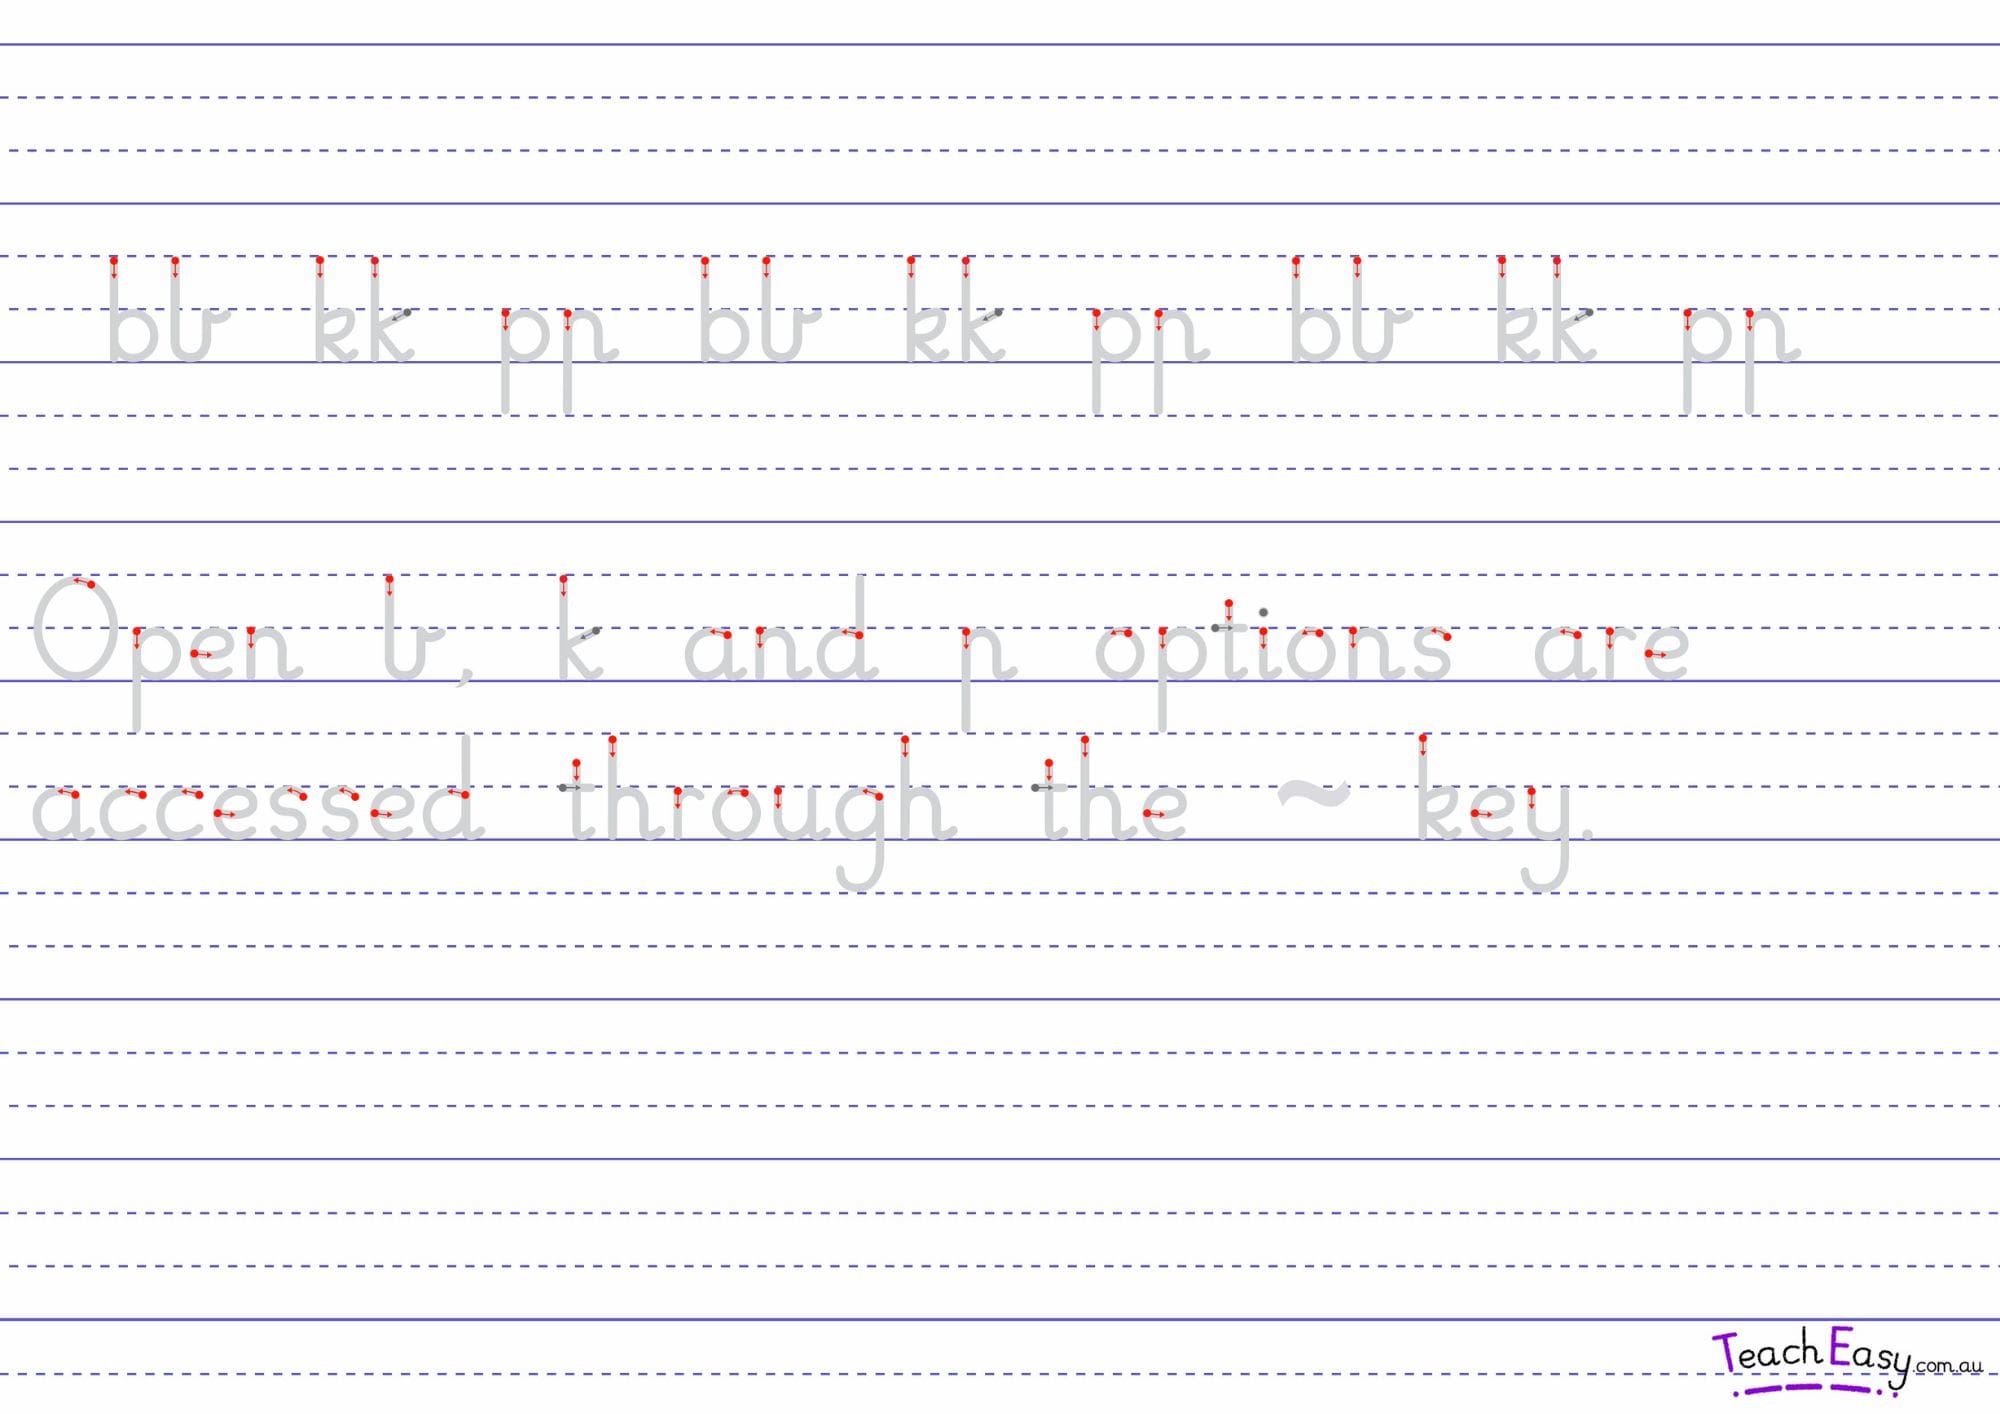 bb kk pp bb kk pp bb kk pp
Open b, k and p options are
accessed through the ~ key.
TeachEasy.com.au